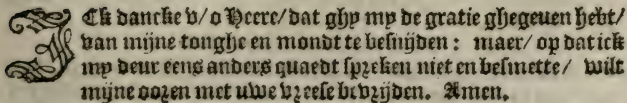 ICk dancke v/ o Heere/ dat ghy my de gratie ghegeuen hebt/
van mijne tonghe en mondt te besnijden : maer/ op dat ick
my deur eens anders quaedt spreken niet en besmette/ wilt
mijne ooren met uwe vreese bevrijden. Amen.